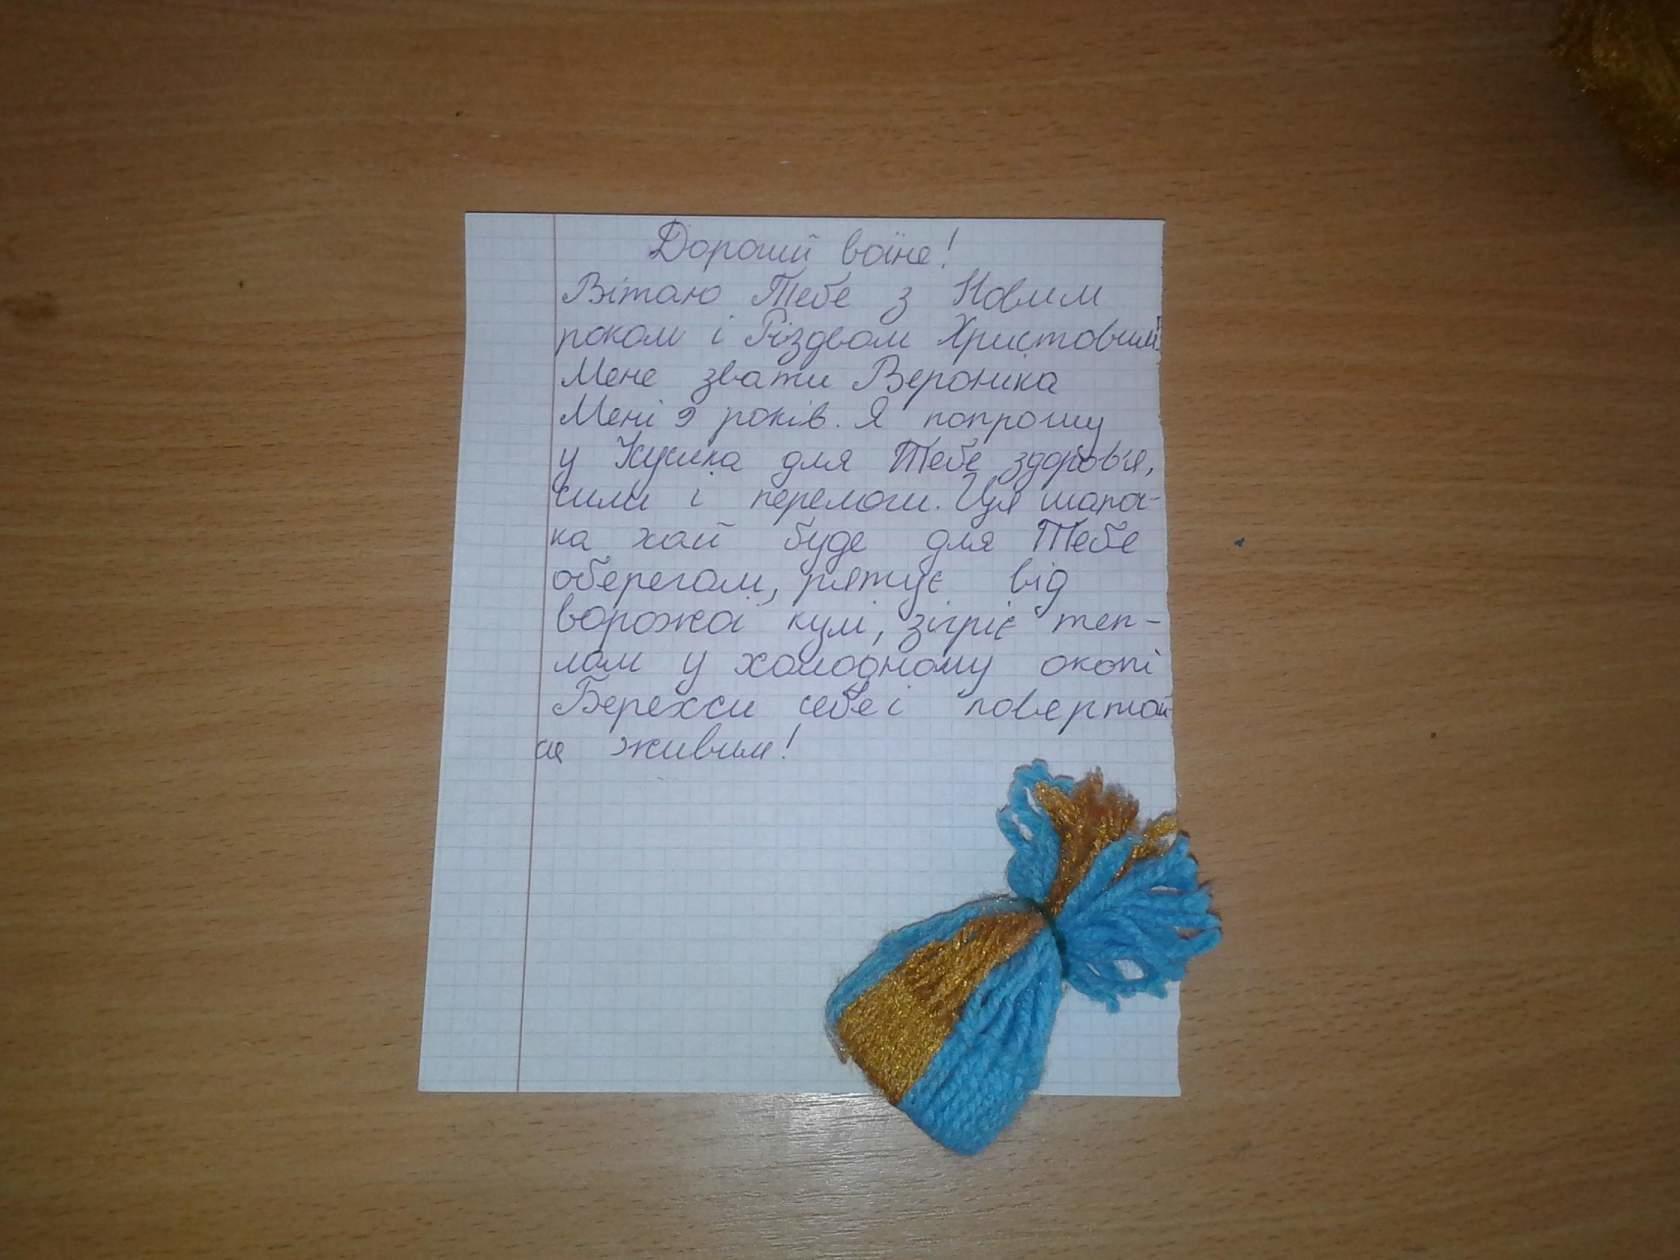 Дорогий воїне!
Вітаю Тебе з Новим
роком і Різдвом Христовим
Мене звати Вероніка
Мені 9 років. Я попрошу
у Ісусика для Тебе здоров'я,
сили і перемоги. Ця шапоч-
ка хай буде для Тебе
оберегом, рятує від
ворожої кулі, зігріє теп-
лом у холодному окопі
Бережи себе і повертай
ся живим!